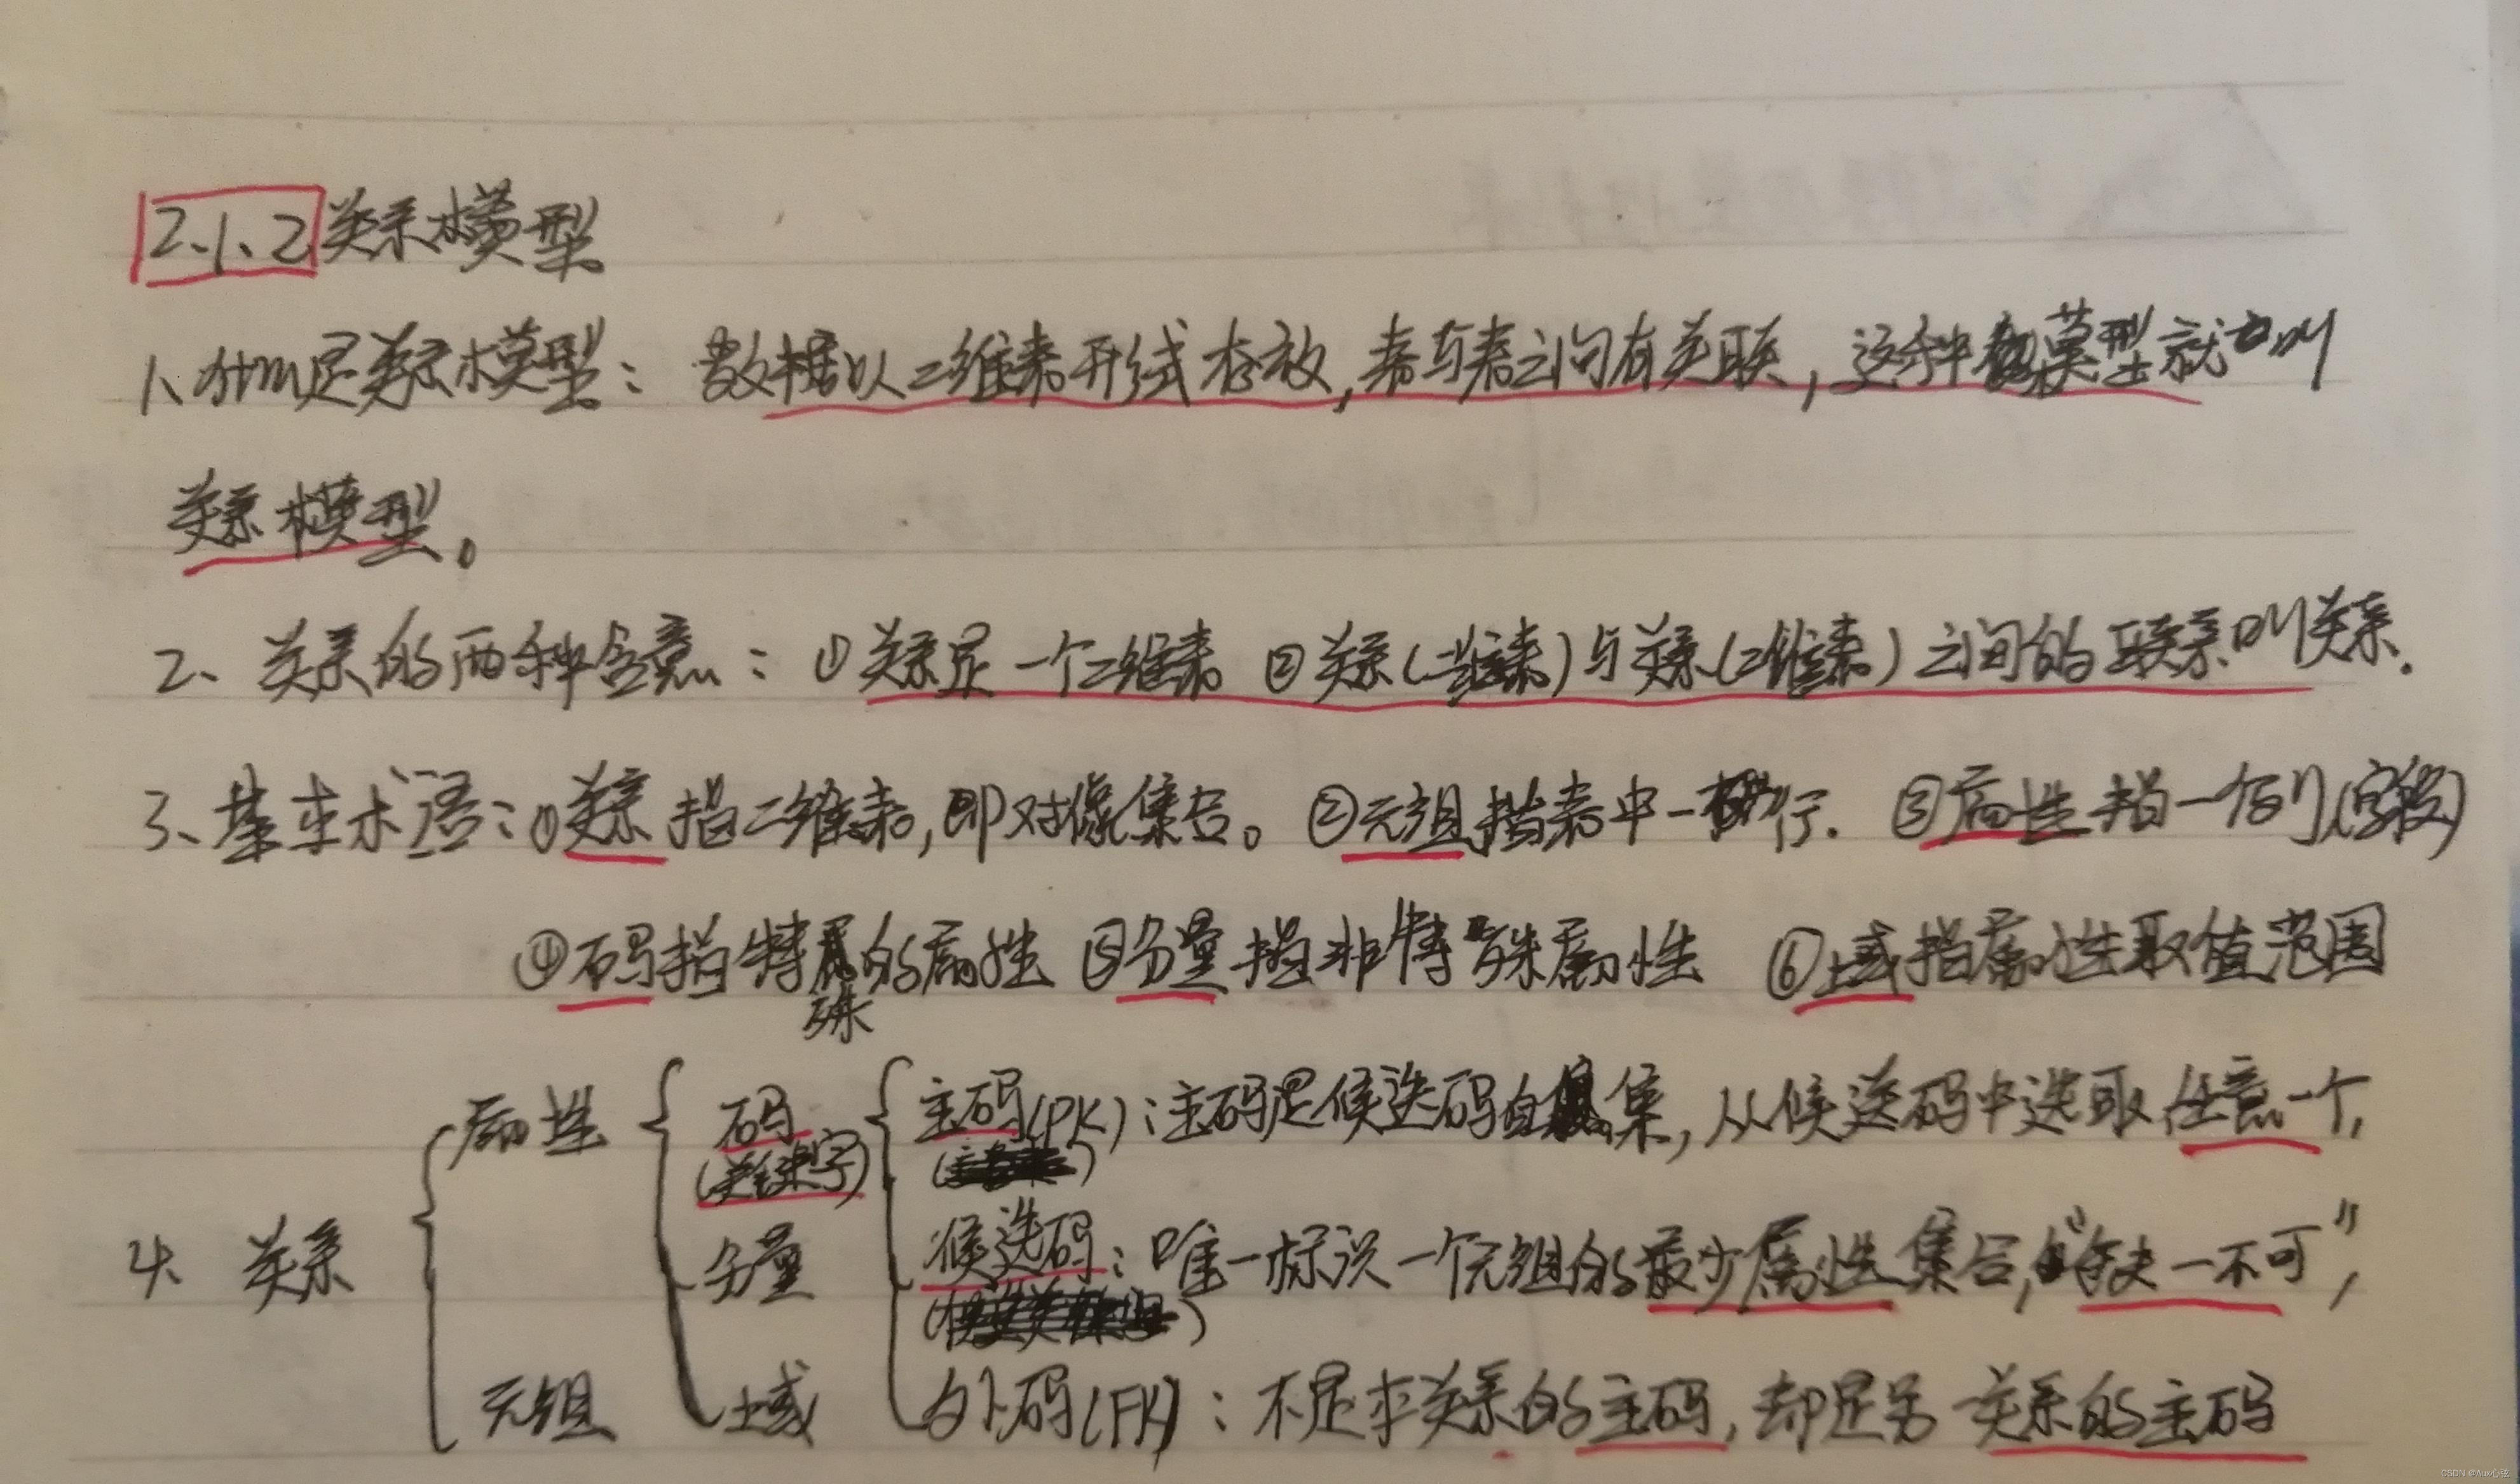 2、1、2 关系模型
1、什么是关系模型：数据以二维表形式存放，表与表之间有关联，这种模型就叫
关系模型。
2、关系的两种含意：①关系是一个二维表 ②关系(二维表)与关系(二维表)之间的联系叫关系.
3、基本术语：①关系指二维表，即对像集合。②元组指表中一行. ③属性指一个列(字段)
④码指特殊的属性 ⑤分量指非特殊属性 ⑥域指属性取值范围
属性 码 主码(PK)：主码是候选码的集，从候选码中选取任意一个，
(关键字)
4、关系 分量 候选码：唯一标识一个元组的最少属性集合，“缺一不可”，
元组 域 外码(FK)：不是本关系的主码，却是另一关系的主码
CSDN @Aux心弦